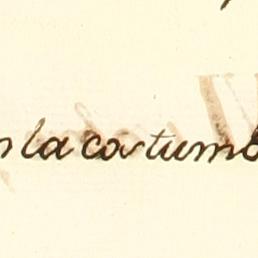 la costumb